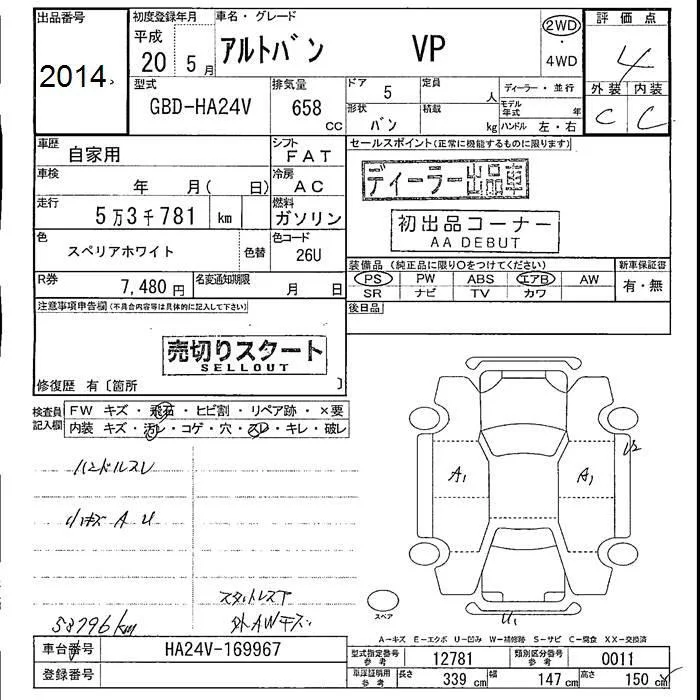 出品番号
2014
初度登録年月
平成
20 5月
車名・グレード
アルトバン VP
2WD
・
4WD
評価点
4
外装 内装
C C
型式
GBD-HA24V
排気量
658 cc
ドア
5
定員
人
形状
バン
積載
kg
ディーラー・並行
モデル年式 年
ハンドル 左・右
車歴
自家用
シフト
FAT
車検
年 月( 日)
冷房
AC
走行
5万3千781 km
燃料
ガソリン
色
スペリアホワイト
色替
色コード
26U
R券
7,480円
名変通知期限
月 日
セールスポイント(正常に機能するものに限ります)
ディーラー出品車
初出品コーナー
AA DEBUT
装備品(純正品に限り○をつけてください)
PS PW ABS エアB AW
SR ナビ TV カワ
新車保証書
有・無
後日品
注意事項申告欄(不具合内容等は具体的に記入して下さい)
売切りスタート
SELLOUT
修復歴 有〔箇所 〕
検査員記入欄
FW キズ・飛石・ヒビ割・リペア跡・×要
内装 キズ・汚レ・コゲ・穴・スレ・キレ・破レ
ハンドルスレ
小キズ A U
スタットレス下
外AWキズ
53796km
A1 A1
U2
U1
スペア
A-キズ E-エクボ U-凹み W-補修跡 S-サビ C-腐食 XX-交換済
車台番号
HA24V-169967
登録番号
型式指定番号
参考
12781
類別区分番号
参考
0011
車庫証明用
参考
長さ 339cm 幅 147cm 高さ 150cm